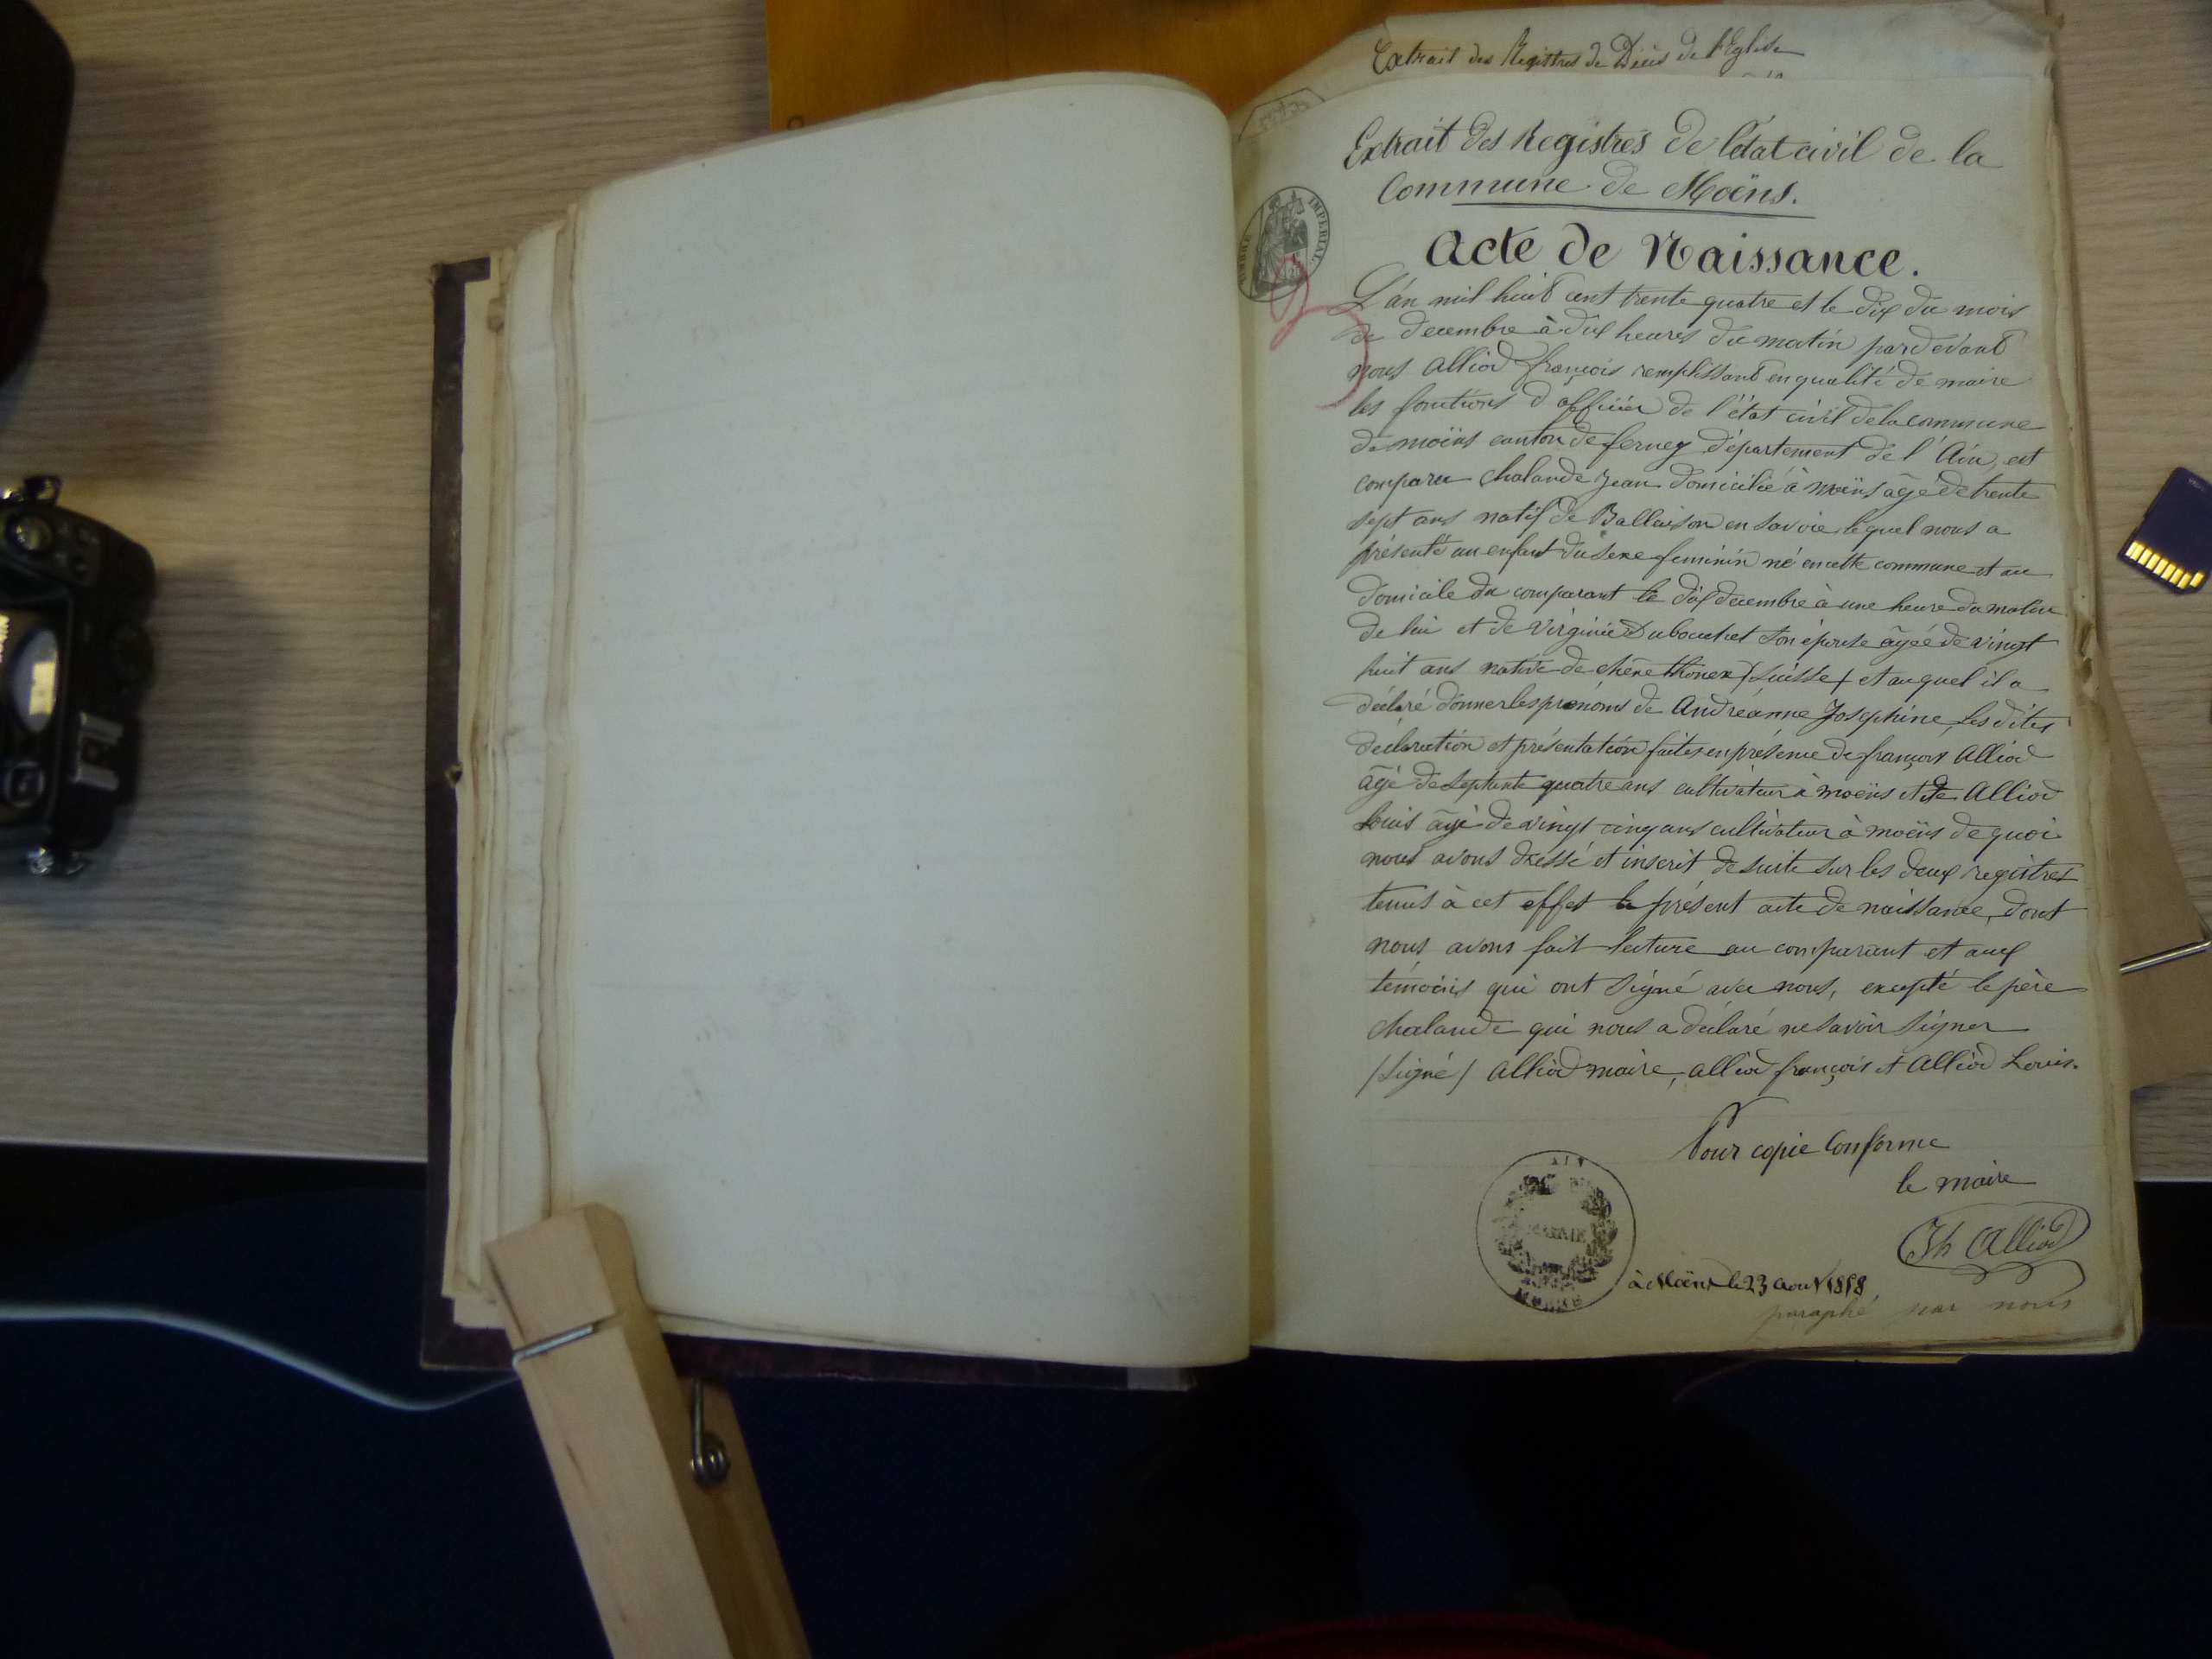 Extrait des Registres de Décès de l'Eglise
Extrait des Registres de l'état civil de la
Commune de Moëns.
TIMBRE IMPERIAL
Acte de Naissance.
L'an mil huit cent trente quatre et le dix du mois
de decembre à dix heures du matin pardevant
nous Alliod françois remplissant en qualité de maire
les fonctions d'officier de l'état civil de la commune
de moëns canton de ferney département de l'Ain, est
comparu Chalande Jean domicilié à moëns âgé de trente
sept ans natif de Ballaison en Savoie lequel nous a
présenté un enfant du sexe feminin né en cette commune et au
domicile du comparant le dix decembre à une heure du matin
de lui et de Virginie Dubouchet son épouse âgée de vingt
huit ans native de chêne thonex (Suisse) et auquel il a
déclaré donner les prénoms de Andréanne Josephine, les dites
déclaration et présentation faites en présence de françois Alliod
âgé de septante quatre ans cultivateur à moëns et de Alliod
Louis âgé de vingt cinq ans cultivateur à moëns de quoi
nous avons dressé et inscrit de suite sur les deux registres
tenus à cet effet le présent acte de naissance, dont
nous avons fait lecture au comparant et aux
témoins qui ont signé avec nous, excepté le père
chalande qui nous a déclaré ne savoir signer
(signé) Alliod maire, alliod françois et Alliod Louis.
Pour copie Conforme
le maire
Alliod
MAIRIE
à Moëns le 23 aout 1858
paraphé par nous